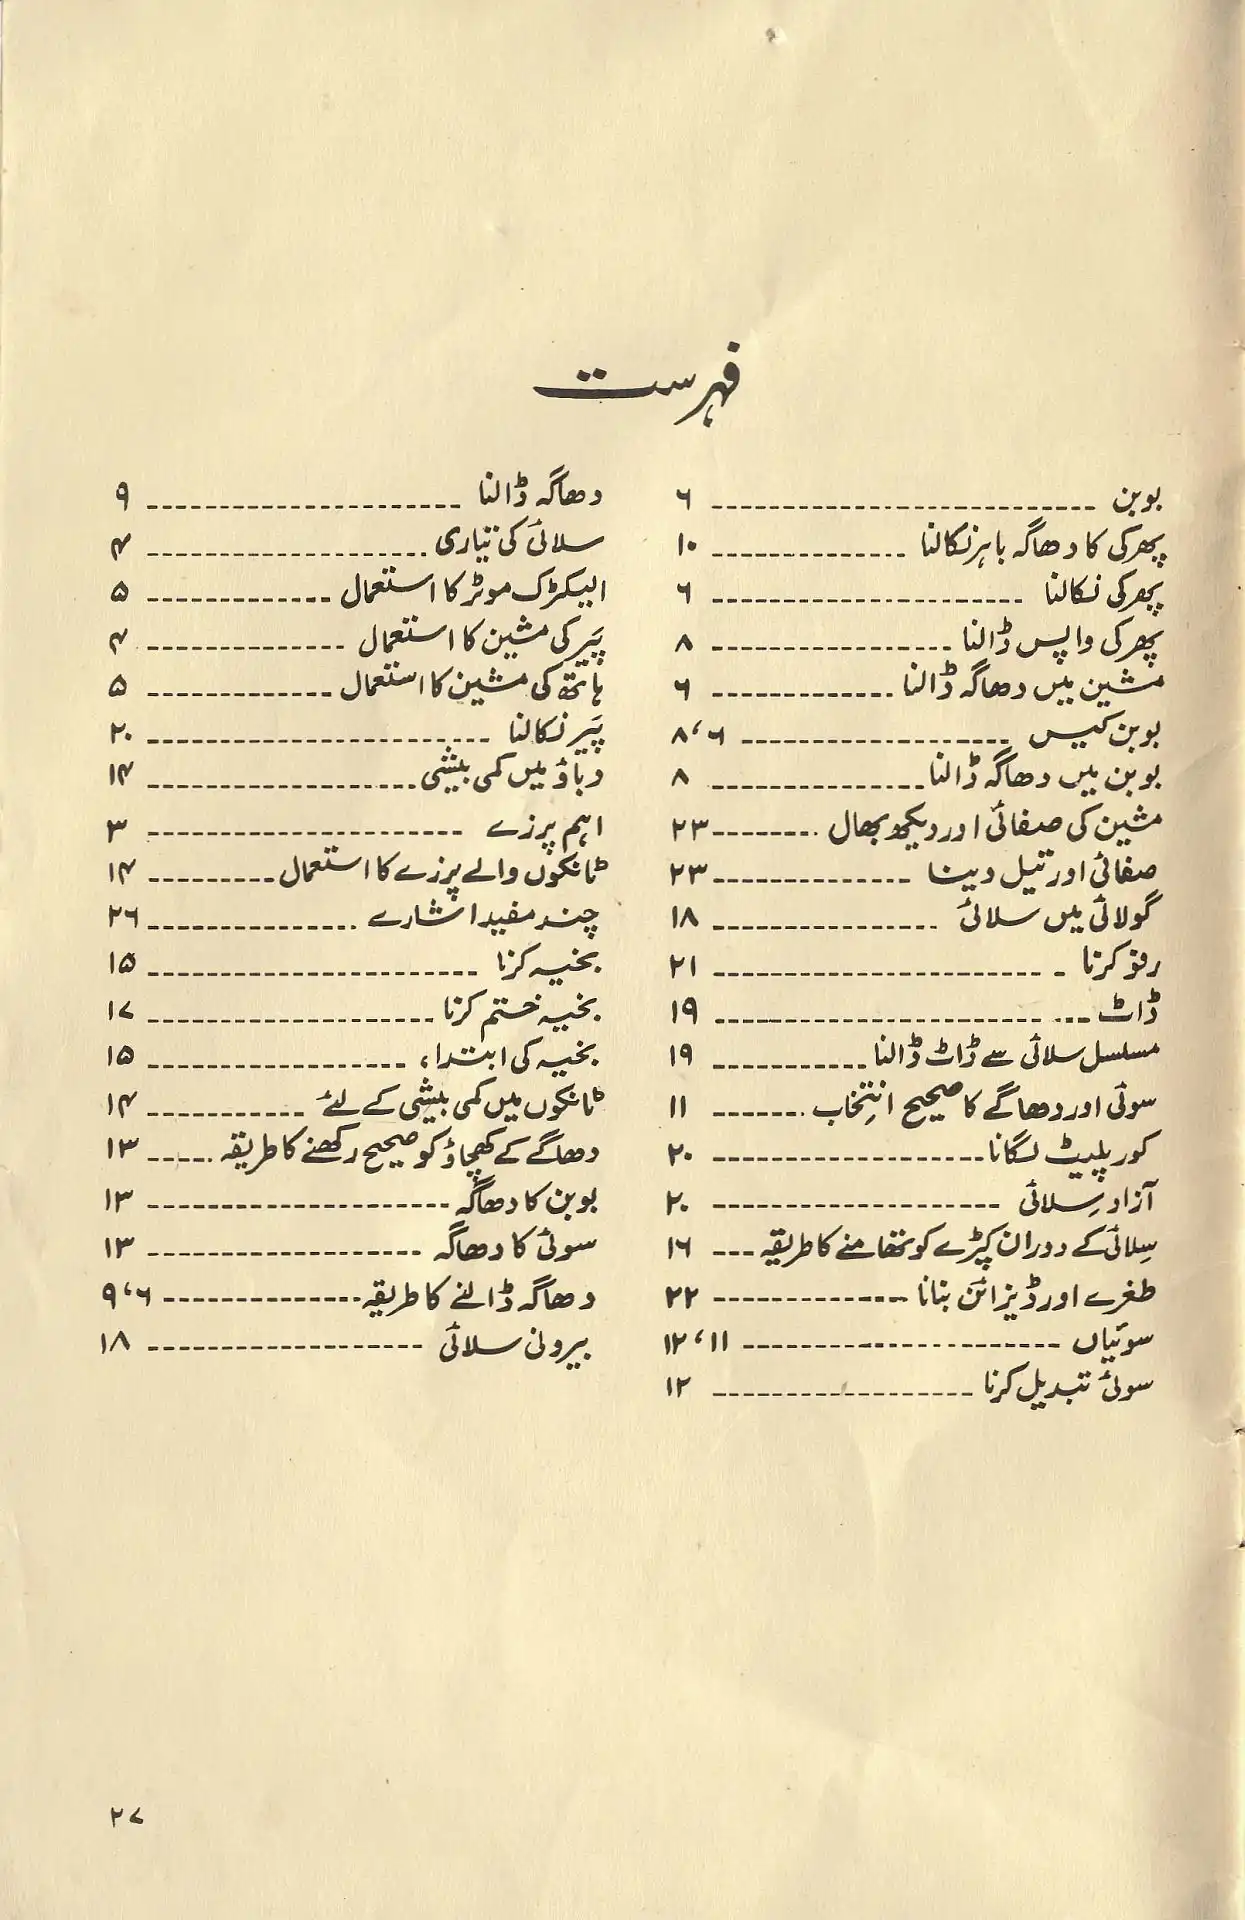 فہرست
بوبن ۶
پھرکی کا دھاگہ باہر نکالنا ۱۰
پھرکی نکالنا ۶
پھرکی واپس ڈالنا ۸
مشین میں دھاگہ ڈالنا ۶
بوبن کیس ۶،۸
بوبن میں دھاگہ ڈالنا ۸
مشین کی صفائی اور دیکھ بھال ۲۳
صفائی اور تیل دینا ۲۳
گولائی میں سلائی ۱۸
رفو کرنا ۲۱
ڈاٹ ۱۹
مسلسل سلائی سے ڈاٹ ڈالنا ۱۹
سوئی اور دھاگے کا صحیح انتخاب ۱۱
کور پلیٹ لگانا ۲۰
آزاد سِلائی ۲۰
سِلائی کے دوران کپڑے کو تھامنے کا طریقہ ۱۶
طغرے اور ڈیزائن بنانا ۲۲
سوئیاں ۱۱،۱۲
سوئی تبدیل کرنا ۱۲
دھاگہ ڈالنا ۹
سلائی کی تیاری ۴
الیکڑک موٹر کا استعمال ۵
پَیر کی مشین کا استعمال ۴
ہاتھ کی مشین کا استعمال ۵
پَیر نکالنا ۲۰
دباؤ میں کمی بیشی ۱۴
اہم پرزے ۳
ٹانکوں والے پرزے کا استعمال ۱۴
چند مفید اشارے ۲۶
بخیہ کرنا ۱۵
بخیہ ختم کرنا ۱۷
بخیہ کی ابتداء ۱۵
ٹانکوں میں کمی بیشی کے لئے ۱۴
دھاگے کے کھچاؤ کو صحیح رکھنے کا طریقہ ۱۳
بوبن کا دھاگہ ۱۳
سوئی کا دھاگہ ۱۳
دھاگہ ڈالنے کا طریقہ ۶،۹
بیرونی سلائی ۱۸
۲۷